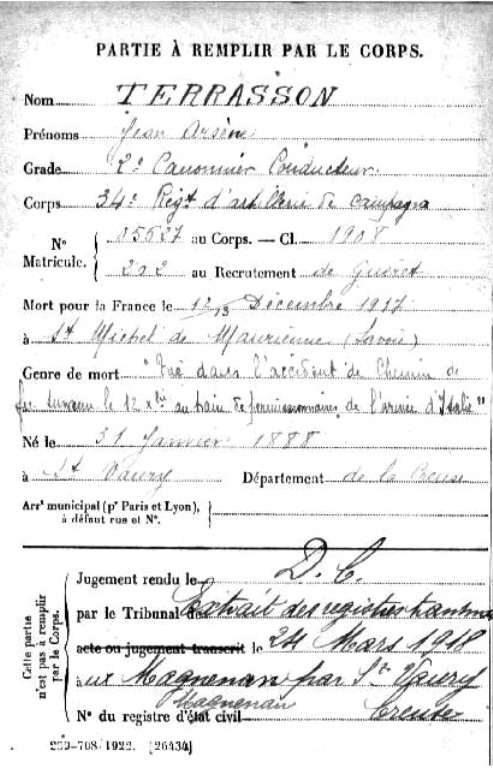 PARTIE À REMPLIR PAR LE CORPS.
Nom TERRASSON
Prénoms Jean Arsène
Grade 2e Canonnier Conducteur
Corps 34e Régt d'artillerie de campagne
No Matricule. 05627 au Corps. — Cl. 1908
202 au Recrutement de Guéret
Mort pour la France le 12/13 Décembre 1917
à St Michel de Maurienne (Savoie)
Genre de mort "Tué dans l'accident de Chemin de
fer survenu le 12 xbre au train de permissionnaires de l'armée d'Italie"
Né le 31 Janvier 1888
à St Vaury Département de la Creuse
Arrt municipal (pr Paris et Lyon),
à défaut rue et No.
Cette partie
n'est pas à remplir
par le Corps.
Jugement rendu le D. C.
par le Tribunal de Extrait des registres
acte ou jugement transcrit le 24 Mars 1918
à Magnenan par St Vaury
Magnenan Creuse
No du registre d'état civil
230-708. 1922. [26434]